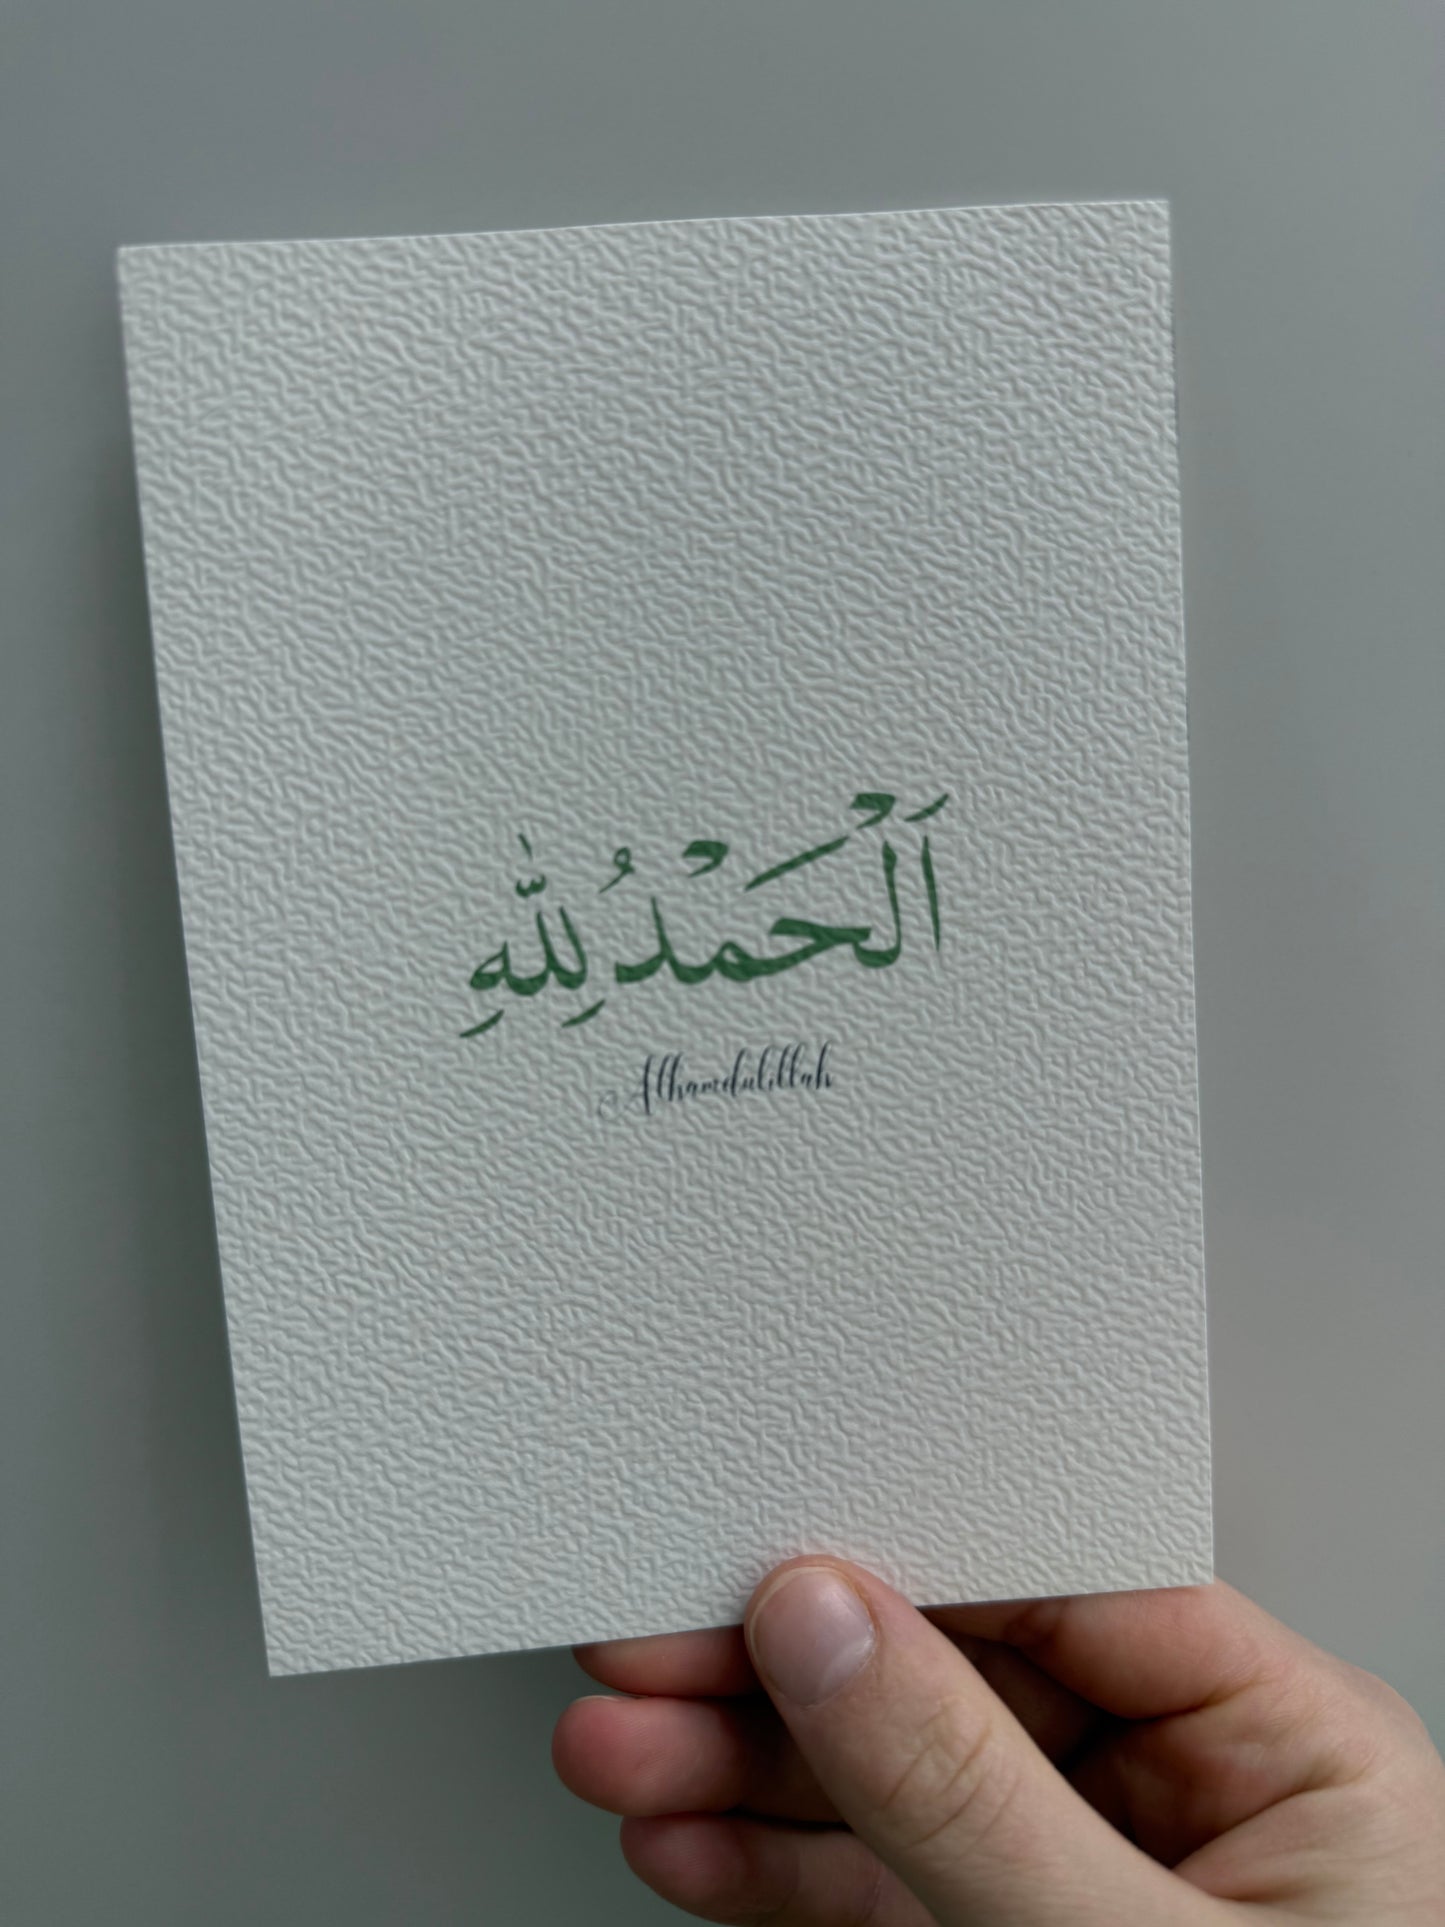 اَلْحَمْدُ لِلّٰهِ
Alhamdulillah